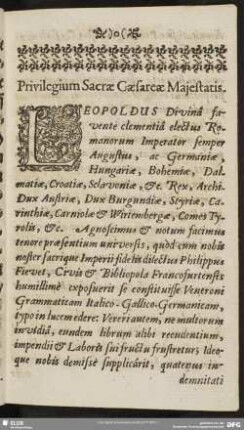 )o(
Privilegium Sacræ Cæsareæ Majestatis.
LEOPOLDUS Divinâ fa-
vente clementiâ electus Ro-
manorum Imperator semper
Augustus, ac Germaniæ,
Hungariæ, Bohemiæ, Dal-
matiæ, Croatiæ, Sclavoniæ, &c. Rex, Archi-
Dux Austriæ, Dux Burgundiæ, Styriæ, Ca-
rinthiæ, Carniolæ & Wirtembergæ, Comes Ty-
rolis, &c. Agnoscimus & notum facimus
tenore præsentium universis, quòd cum nobis
noster sacrique Imperii fidelis dilectus Philippus
Fievet, Civis & Bibliopola Francofurtensis
humillimè exposuerit se constituisse Veneroni
Grammaticam Italico-Gallico-Germanicam,
typo in lucem edere: Vereri autem, ne multorum
invidiâ, eundem librum alibi recudentium,
impendii & Laboris sui fructu frustretur; Ideo-
que nobis demissè supplicârit, quatenus in-
demnitati
SLUB
DFG